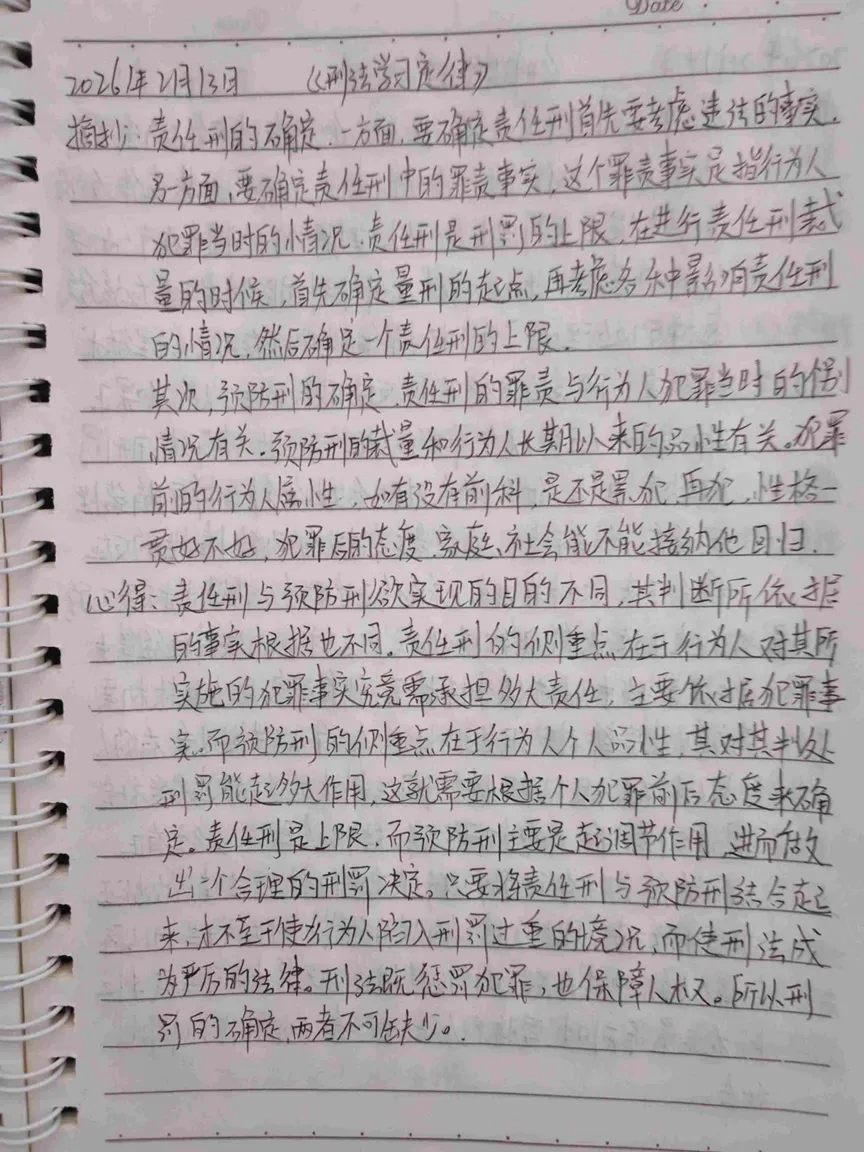 Date :
2026年2月13日 《刑法学习定律》
摘抄：责任刑的确定．一方面，要确定责任刑首先要考虑违法的事实．
另一方面，要确定责任刑中的罪责事实，这个罪责事实是指行为人
犯罪当时的情况．责任刑是刑罚的上限，在进行责任刑裁
量的时候，首先确定量刑的起点，再考虑各种影响责任刑
的情况，然后确定一个责任刑的上限．
其次，预防刑的确定．责任刑的罪责与行为人犯罪当时的个别
情况有关。预防刑的裁量和行为人长期以来的品性有关。犯罪
前的行为人属性，如有没有前科，是不是累犯、再犯，性格一
贯好不好，犯罪后的态度、家庭、社会能不能接纳他回归．
心得：责任刑与预防刑欲实现的目的不同，其判断所依据
的事实根据也不同。责任刑的侧重点在于行为人对其所
实施的犯罪事实究竟需承担多大责任，主要依据犯罪事
实。而预防刑的侧重点在于行为人个人品性，其对其判处
刑罚能起多大作用，这就需要根据个人犯罪前后态度来确
定。责任刑是上限，而预防刑主要是起调节作用，进而做
出一个合理的刑罚决定。只要将责任刑与预防刑结合起
来，才不至于使行为人陷入刑罚过重的境况，而使刑法成
为严厉的法律。刑法既惩罚犯罪，也保障人权。所以刑
罚的确定，两者不可缺少。